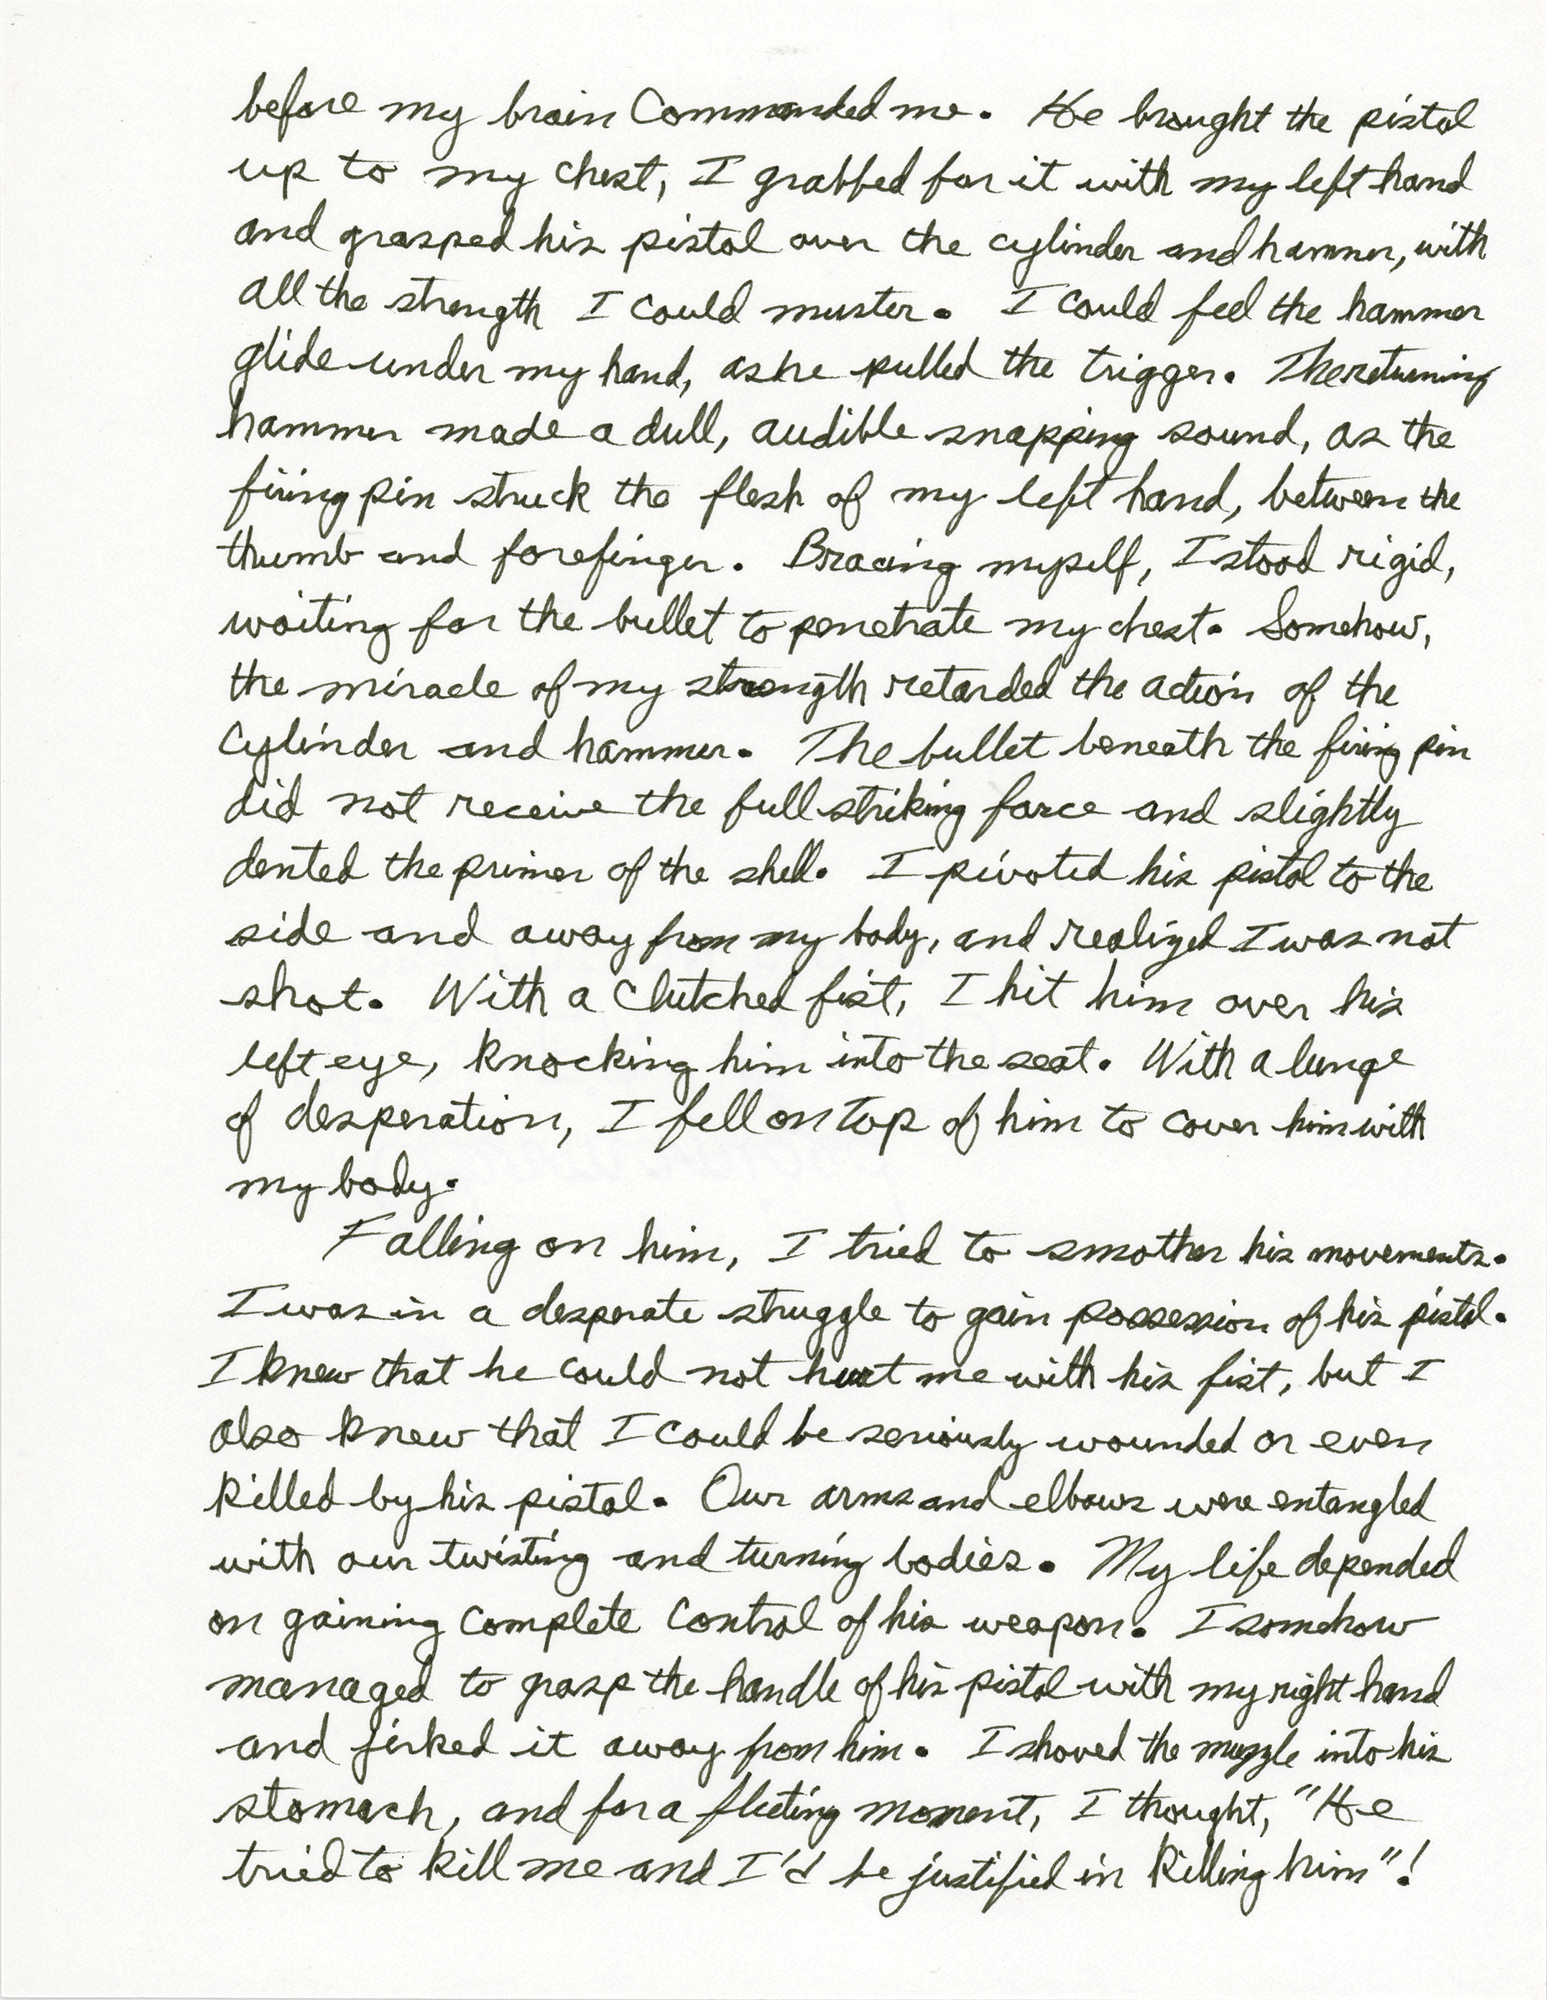 before my brain Commanded me. He brought the pistol
up to my chest, I grabbed for it with my left hand
and grasped his pistol over the cylinder and hammer, with
all the strength I could muster. I could feel the hammer
glide under my hand, as he pulled the trigger. The returning
hammer made a dull, audible snapping sound, as the
firing pin struck the flesh of my left hand, between the
thumb and forefinger. Bracing myself, I stood rigid,
waiting for the bullet to penetrate my chest. Somehow,
the miracle of my strength retarded the action of the
cylinder and hammer. The bullet beneath the firing pin
did not receive the full striking force and slightly
dented the primer of the shell. I pivoted his pistol to the
side and away from my body, and realized I was not
shot. With a clutched fist, I hit him over his
left eye, knocking him into the seat. With a lunge
of desperation, I fell on top of him to cover him with
my body.
Falling on him, I tried to smother his movements.
I was in a desperate struggle to gain possession of his pistol.
I knew that he could not hurt me with his fist, but I
also knew that I could be seriously wounded or even
killed by his pistol. Our arms and elbows were entangled
with our twisting and turning bodies. My life depended
on gaining complete control of his weapon. I somehow
managed to grasp the handle of his pistol with my right hand
and jirked it away from him. I shoved the muzzle into his
stomach, and for a fleeting moment, I thought, "He
tried to kill me and I'd be justified in killing him"!